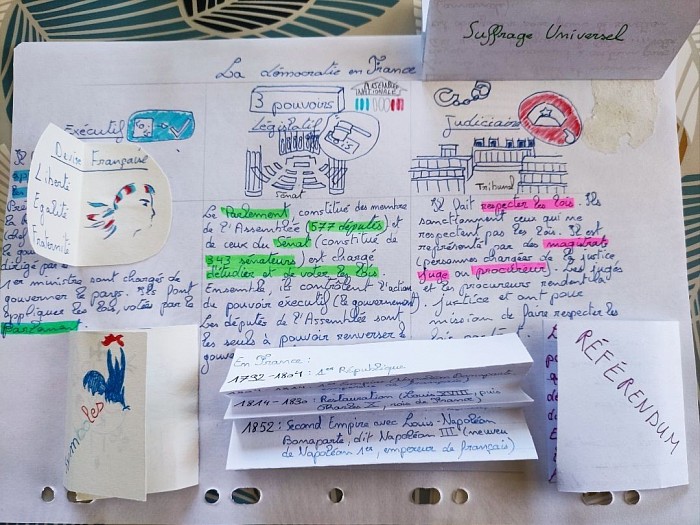 Suffrage Universel
La démocratie en France
3 pouvoirs
ASSEMBLÉE
NATIONALE
Exécutif
Législatif
Judiciaire
Sénat
Tribunal
Devise Française
Liberté
Égalité
Fraternité
dirigé par
1er ministre sont chargés de
gouverner le pays. Ils font
appliquer les lois, votées par le
Parlement.
Le Parlement constitué des membres
de l'Assemblée (577 députés) et
de ceux du Sénat (constitué de
343 sénateurs) est chargé
d'étudier et de voter les lois.
Ensemble, ils contrôlent l'action
du pouvoir exécutif (le gouvernement)
Les députés de l'Assemblée sont
les seuls à pouvoir renverser le
Il fait respecter les lois. Ils
sanctionnent ceux qui ne
respectent pas les lois. Il est
représenté par des magistrats
(personnes chargées de la justice
juge ou procureur). Les juges
et les procureurs rendent la
justice et ont pour
mission de faire respecter les
symboles
En France :
1792-1804 : 1ère République
1814-1830 : Restauration (Louis XVIII, puis
Charles X, rois de France)
1852 : Second Empire avec Louis-Napoléon
Bonaparte, dit Napoléon III (neveu
de Napoléon 1er, empereur de français)
RÉFÉRENDUM